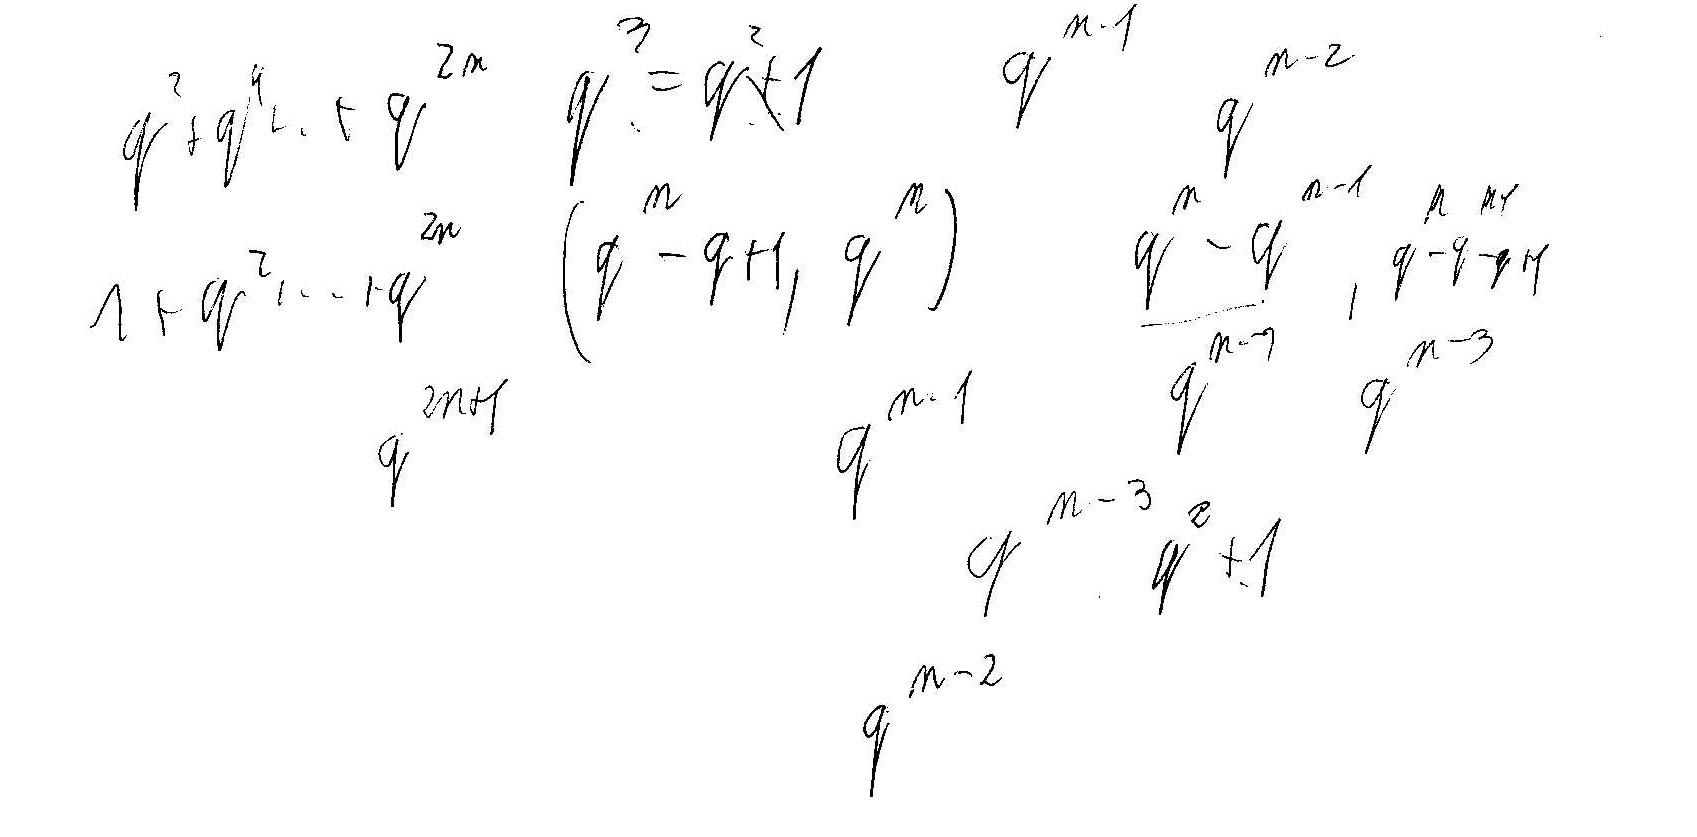 q^2 + q^4 + .. + q^{2n}   q^3 = q^2 + 1   q^{n-1}   q^{n-2}
1 + q^2 + ... + q^{2n}   (q^n - q + 1, q^n)   q^n - q^{n-1} ,
q^{2n+1}   q^{n-1}   q^{n-3}
q^{n-3}   q^2 + 1
q^{n-2}